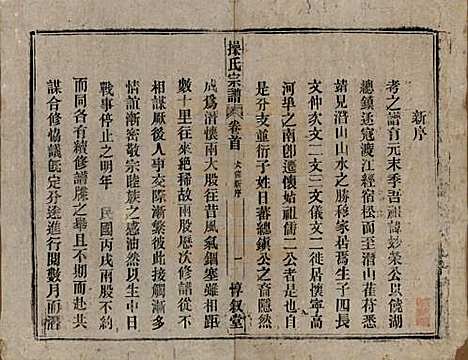 新序
考之譜首元末季吾祖諱妙榮公以饒湖
總鎮逐寇渡江經宿松而至潛山萑苻悉
靖見潛山山水之勝移家居焉生子四長
文仲次文二文三文儀文二徙居懷寧高
河阜之南卽遷懷始祖
是分支並衍子姓日蕃總鎮公之裔隱然
成爲潛懷兩大股往昔風氣錮塞雖相距
數十里往來絕稀故兩股歷次修譜不
相謀厥後人事交際漸繁彼此接觸漸多
情誼漸密敬宗睦族之感油然以生中日
戰事停止之明年 民國丙戌歲兩大股
而同各有續修譜牒之舉且不期而赴共
謀合修協議旣定分途進行閱數月而潛
操氏宗譜
卷首
大宗新序
一
惇敘堂